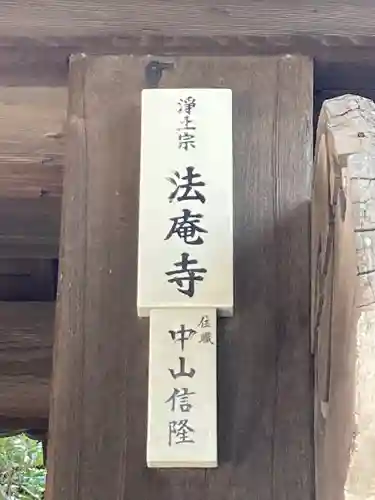 淨土宗
法庵寺
住職
中山信隆